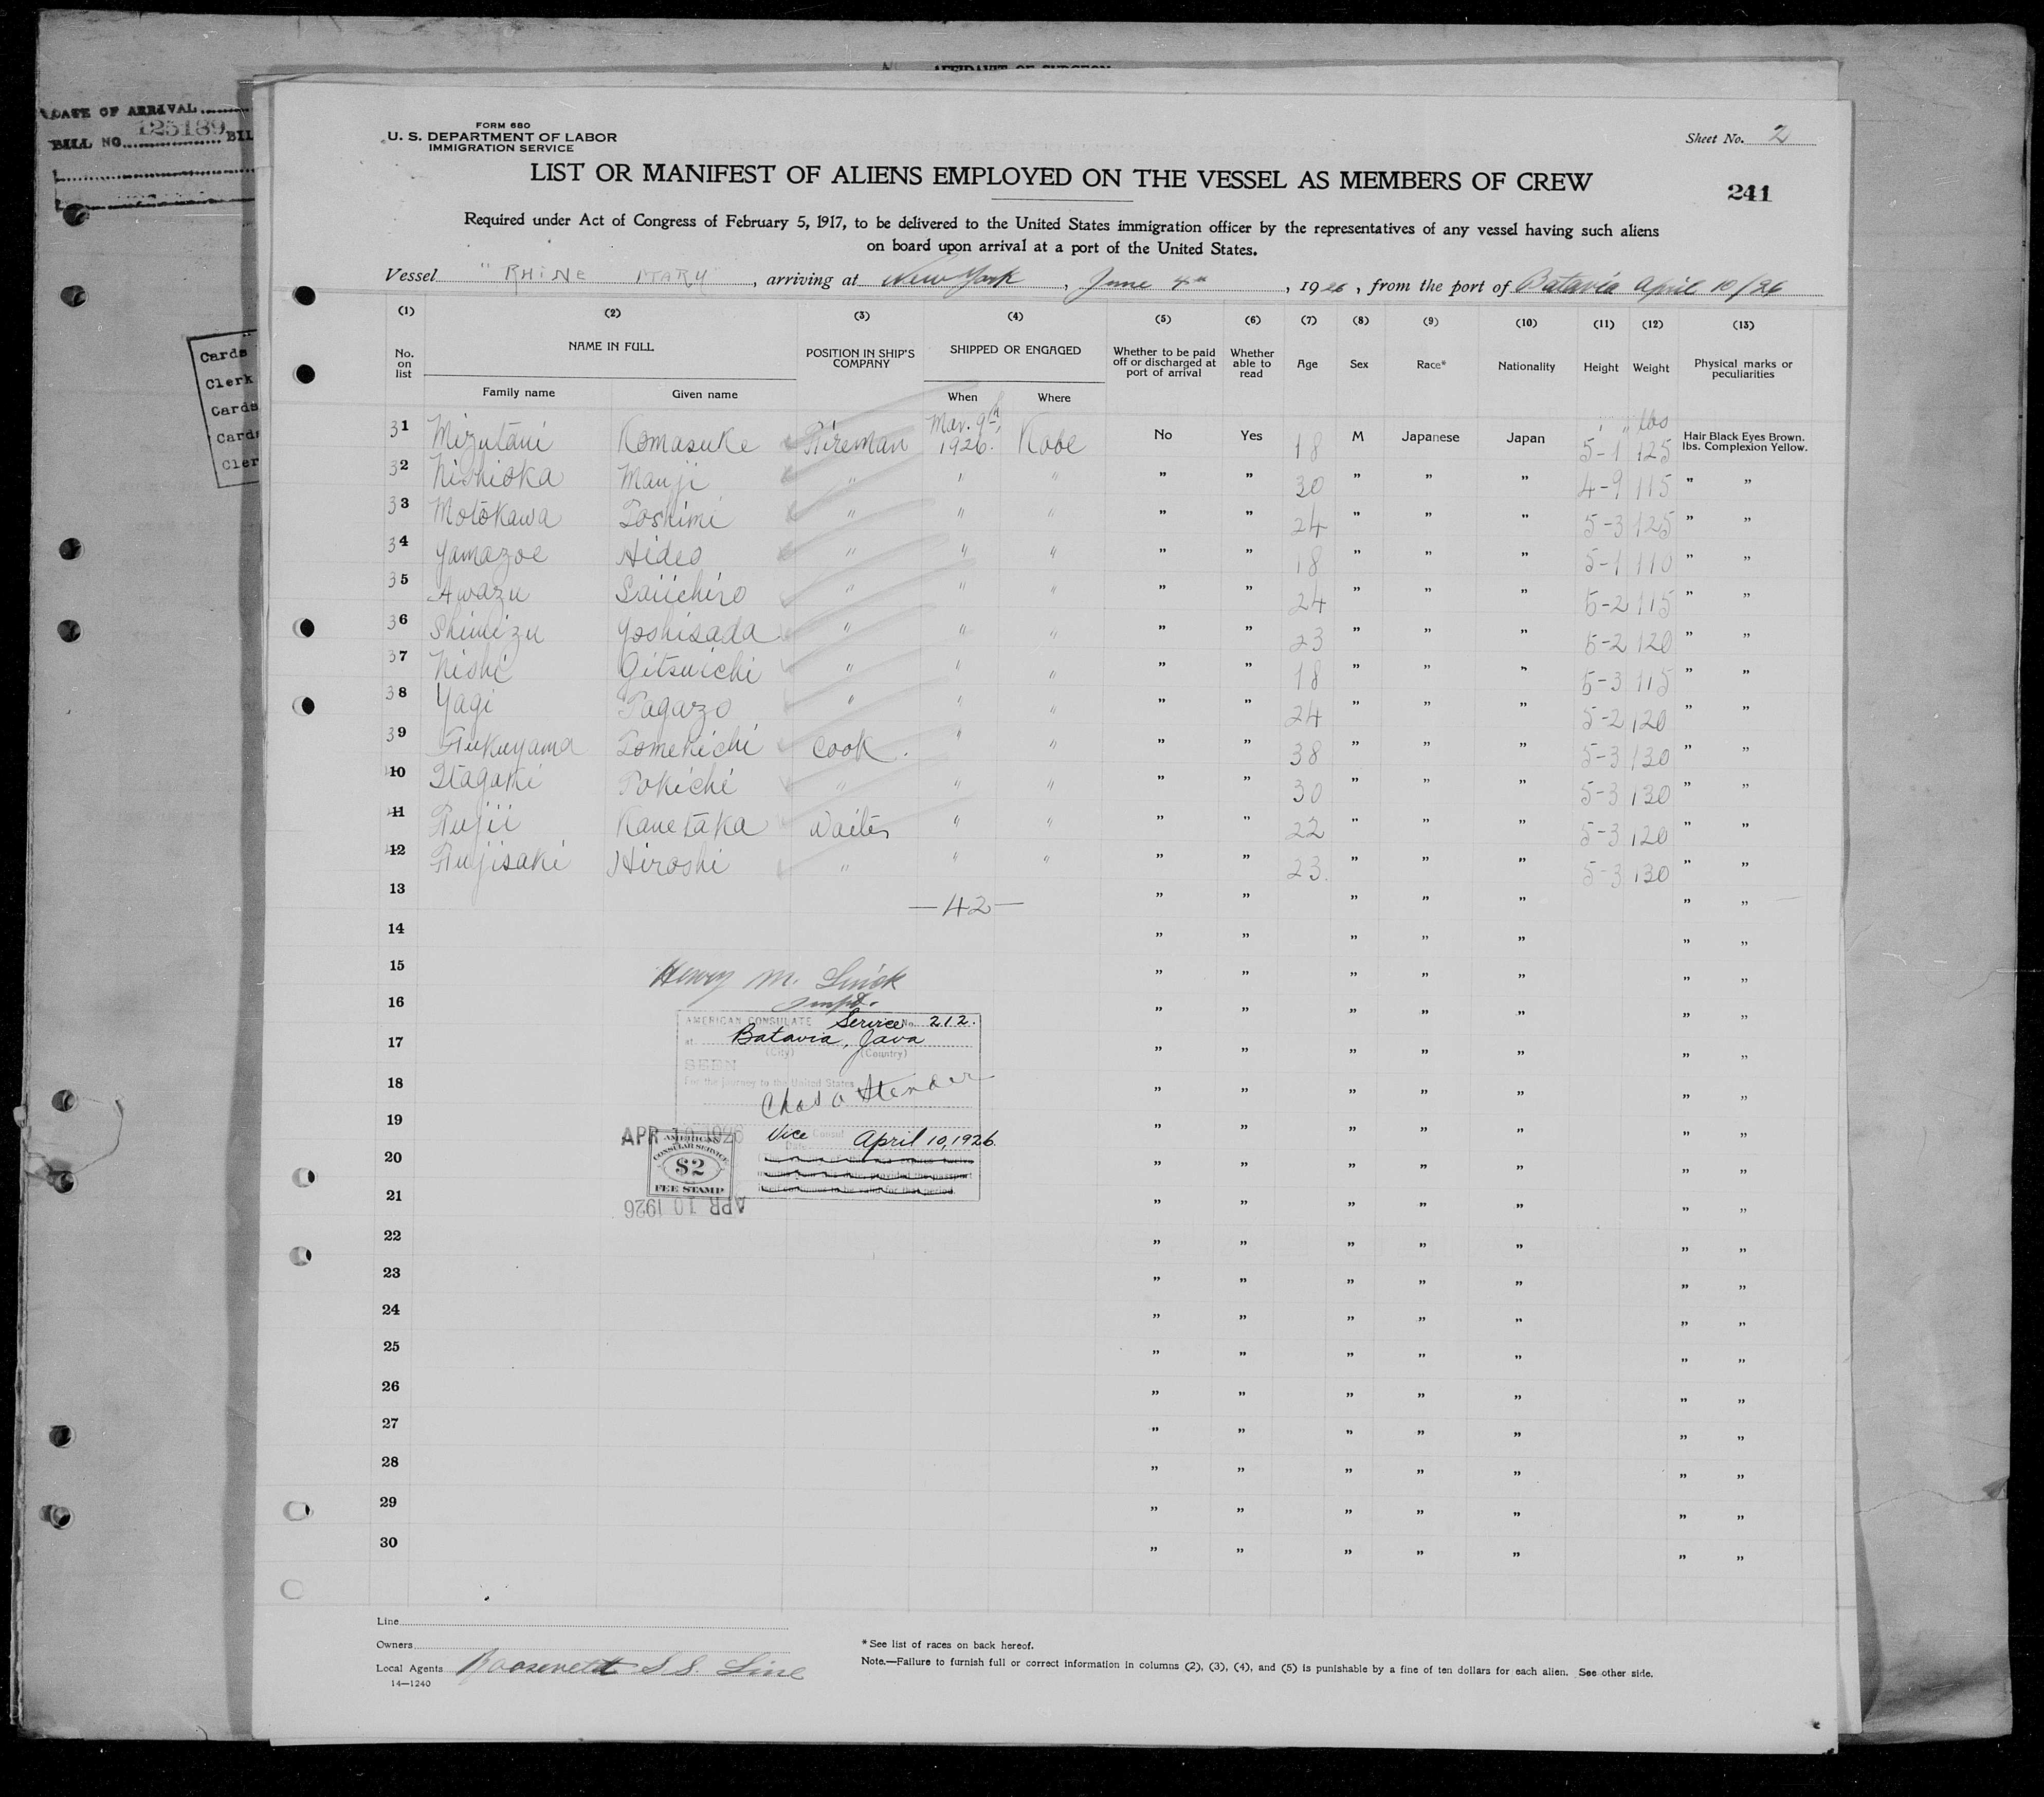 AFFIDAVIT OF SURGEON
DATE OF ARRIVAL
BILL NO. 125189 BIL
Cards
Clerk
Cards
Card
Cler
FORM 680
U. S. DEPARTMENT OF LABOR
IMMIGRATION SERVICE
Sheet No. 2
LIST OR MANIFEST OF ALIENS EMPLOYED ON THE VESSEL AS MEMBERS OF CREW
241
Required under Act of Congress of February 5, 1917, to be delivered to the United States immigration officer by the representatives of any vessel having such aliens
on board upon arrival at a port of the United States.
Vessel "RHINE MARU", arriving at New York, June 4th, 1926, from the port of Batavia April 10/26
(1) (2) (3) (4) (5) (6) (7) (8) (9) (10) (11) (12) (13)
No. on list NAME IN FULL Family name Given name POSITION IN SHIP'S COMPANY SHIPPED OR ENGAGED When Where Whether to be paid off or discharged at port of arrival Whether able to read Age Sex Race* Nationality Height Weight Physical marks or peculiarities
31 Mizutani Komasuke Fireman Mar. 9th, 1926. Kobe No Yes 18 M Japanese Japan 5-1 125 lbs Hair Black Eyes Brown. lbs. Complexion Yellow.
32 Nishioka Manji " " " " " 30 " " " 4-9 115 " "
33 Motokawa Toshimi " " " " " 24 " " " 5-3 125 " "
34 Yamazoe Hideo " " " " " 18 " " " 5-1 110 " "
35 Awazu Saiichiro " " " " " 24 " " " 5-2 115 " "
36 Shimizu Yoshisada " " " " " 23 " " " 5-2 120 " "
37 Nishi Gitsuichi " " " " " 18 " " " 5-3 115 " "
38 Yagi Tagazo " " " " " 24 " " " 5-2 120 " "
39 Fukuyama Tomekichi Cook. " " " " 38 " " " 5-3 130 " "
40 Itagaki Tokichi " " " " " 30 " " " 5-3 130 " "
41 Fujii Kanetaka Waiter " " " " 22 " " " 5-3 120 " "
42 Fujisaki Hiroshi " " " " " 23. " " " 5-3 130 " "
13 —42— " " " " " " "
14 " " " " " " "
15 " " " " " " "
16 " " " " " " "
17 " " " " " " "
18 " " " " " " "
19 " " " " " " "
20 " " " " " " "
21 " " " " " " "
22 " " " " " " "
23 " " " " " " "
24 " " " " " " "
25 " " " " " " "
26 " " " " " " "
27 " " " " " " "
28 " " " " " " "
29 " " " " " " "
30 " " " " " " "
Henry M.
AMERICAN CONSULATE Service No. 212.
at Batavia, Java
(City) (Country)
SEEN
For the journey to the United States
Chas O Stender
Vice Consul
Date April 10, 1926.
APR 10 1926
AMERICAN
CONSULAR SERVICE
$2
FEE STAMP
APR 10 1926
Line
Owners
Local Agents Roosevelt S.S. Line
14—1240
* See list of races on back hereof.
Note.—Failure to furnish full or correct information in columns (2), (3), (4), and (5) is punishable by a fine of ten dollars for each alien. See other side.